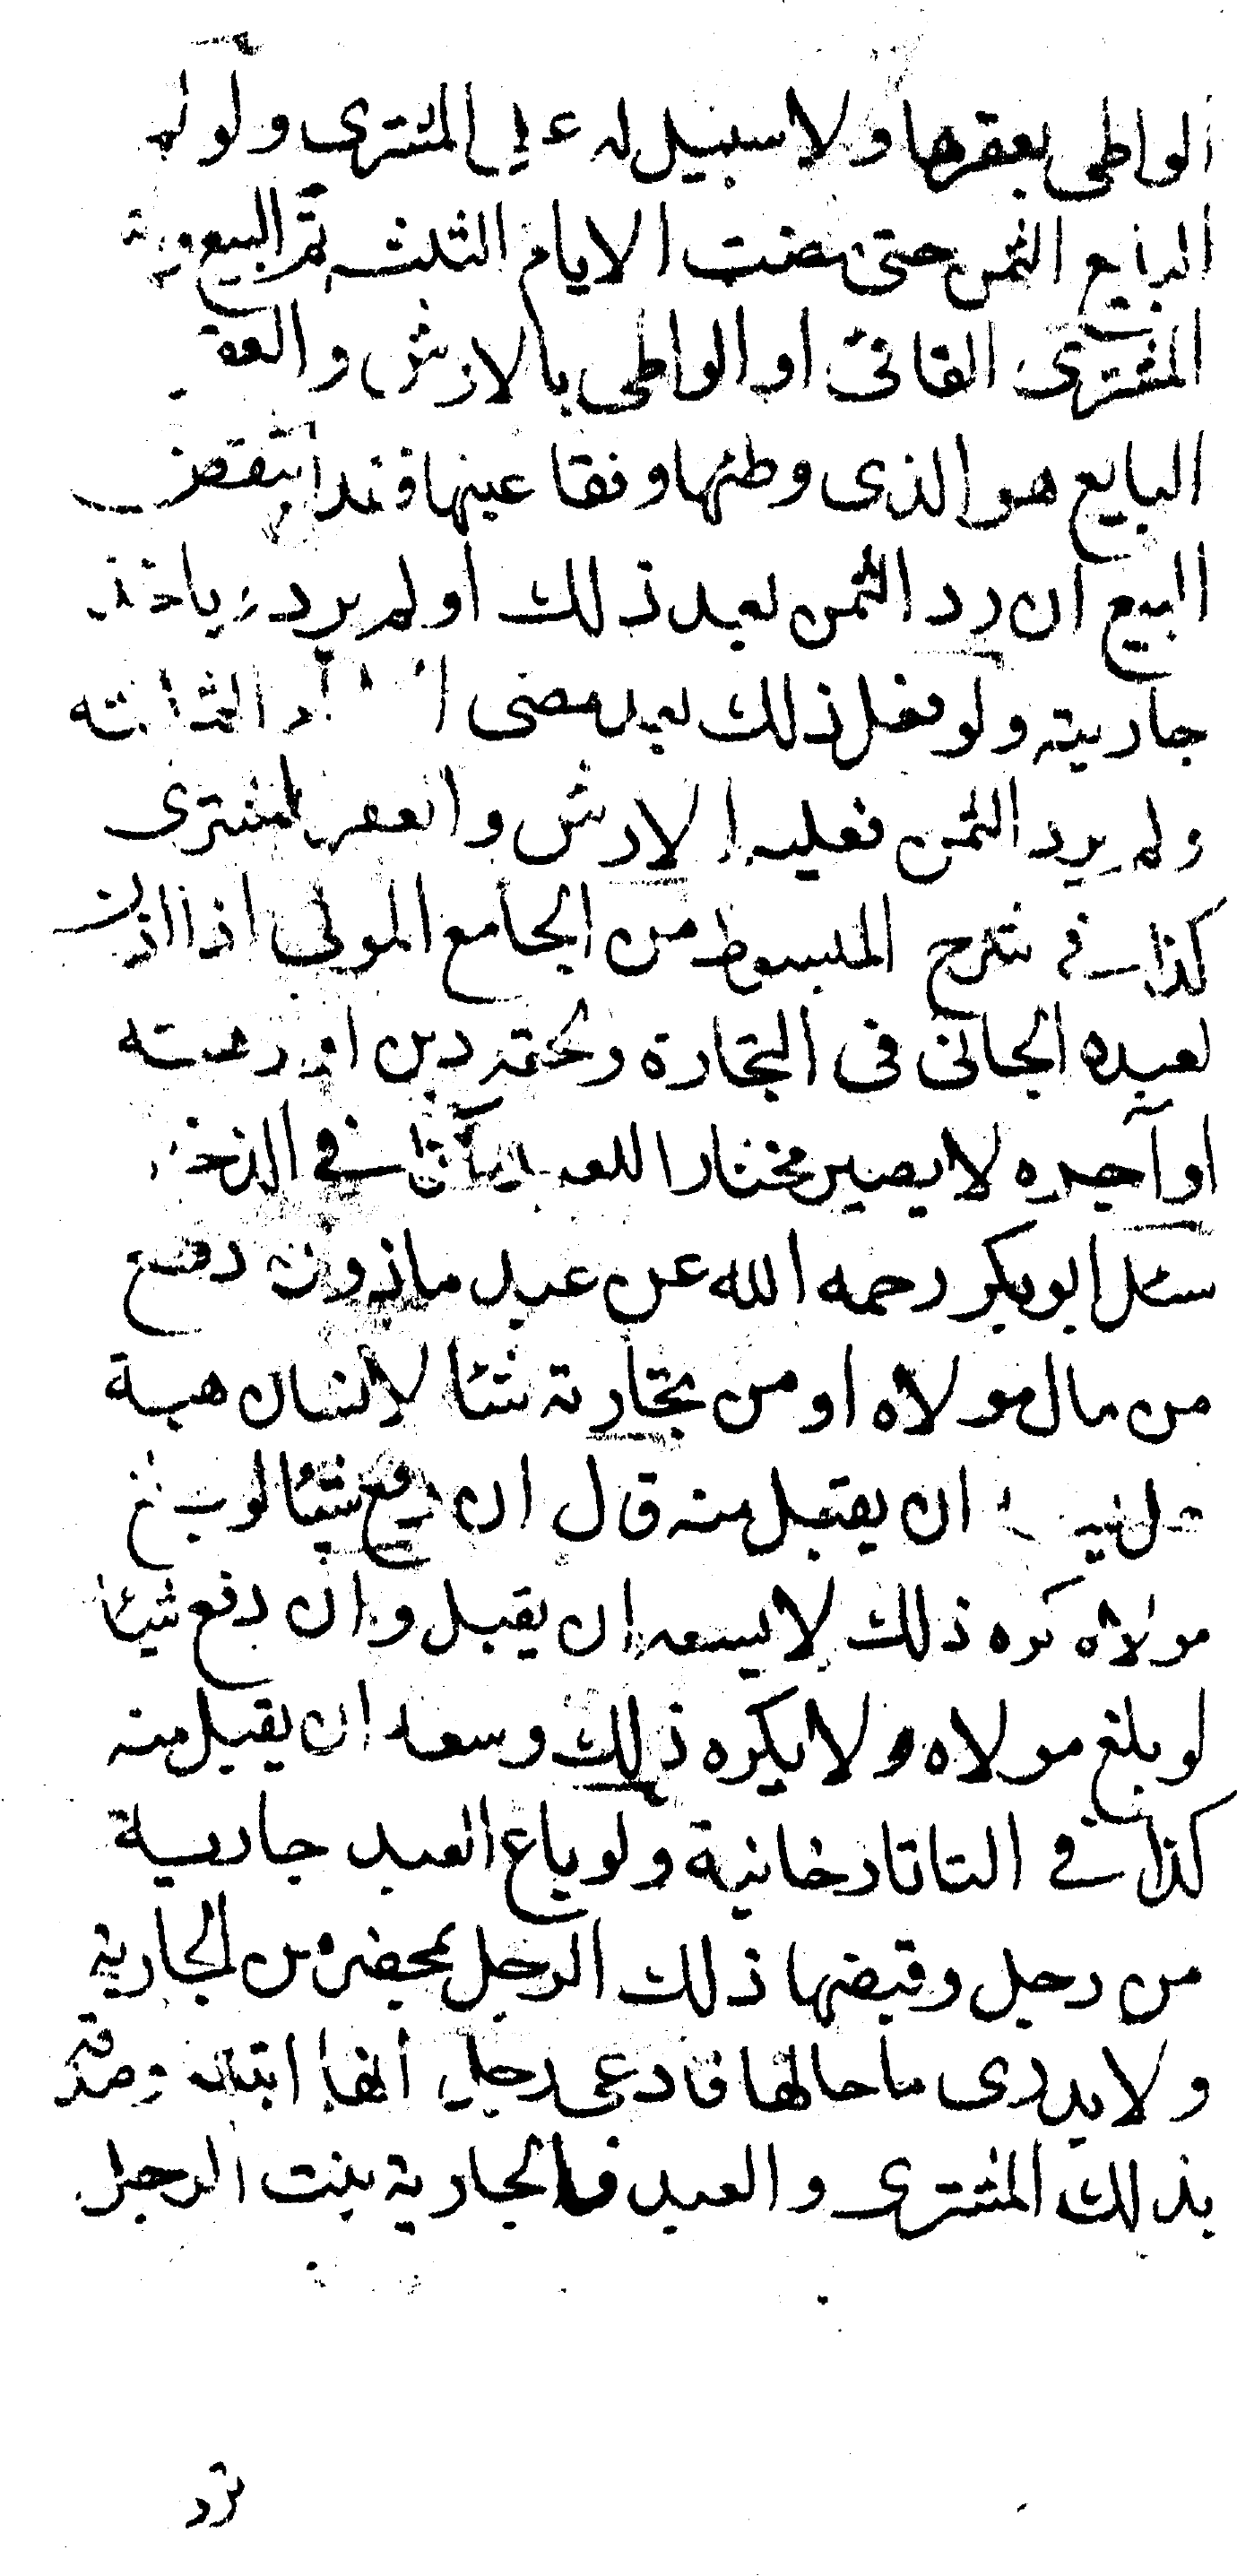 الواطى بعقرها ولا سبيل له على المشترى ولو لم
البايع الثمن حتى مضت الايام الثلثه تم البيع
المشترى الفاقئ او الواطى بالارش والعقر
البايع هو الذى وطئها وفقا عينها فقد انتقض
البيع ان رد الثمن بعد ذلك او لم يرد وياخذ
جاريته ولو فعل ذلك بعد مضى الثلثه
ولم يرد الثمن فعليه الارش والعقر للمشترى
كذا فى شرح المبسوط من الجامع المولى اذا اذن
لعبده الجانى فى التجارة ولحقه دين او رهنه
او آجره لا يصير مختارا للعبد كذا فى
سئل ابو بكر رحمه الله عن عبد ماذون دفع
من مال مولاه او من تجارته شئا لانسان هبة
ان يقبل منه قال ان دفع شيئا لو بلغ
مولاه كره ذلك لا يسعه ان يقبل وان دفع شيئا
لو بلغ مولاه ولا يكره ذلك وسعه ان يقبل منه
كذا فى التاتارخانية ولو باع العبد جارية
من رجل وقبضها ذلك الرجل بمحضر من الجارية
ولا يدرى ما حالها فادعى رجل انها ابنته وصدقه
بذلك المشترى والعبد فالجارية بنت الرجل
ترد